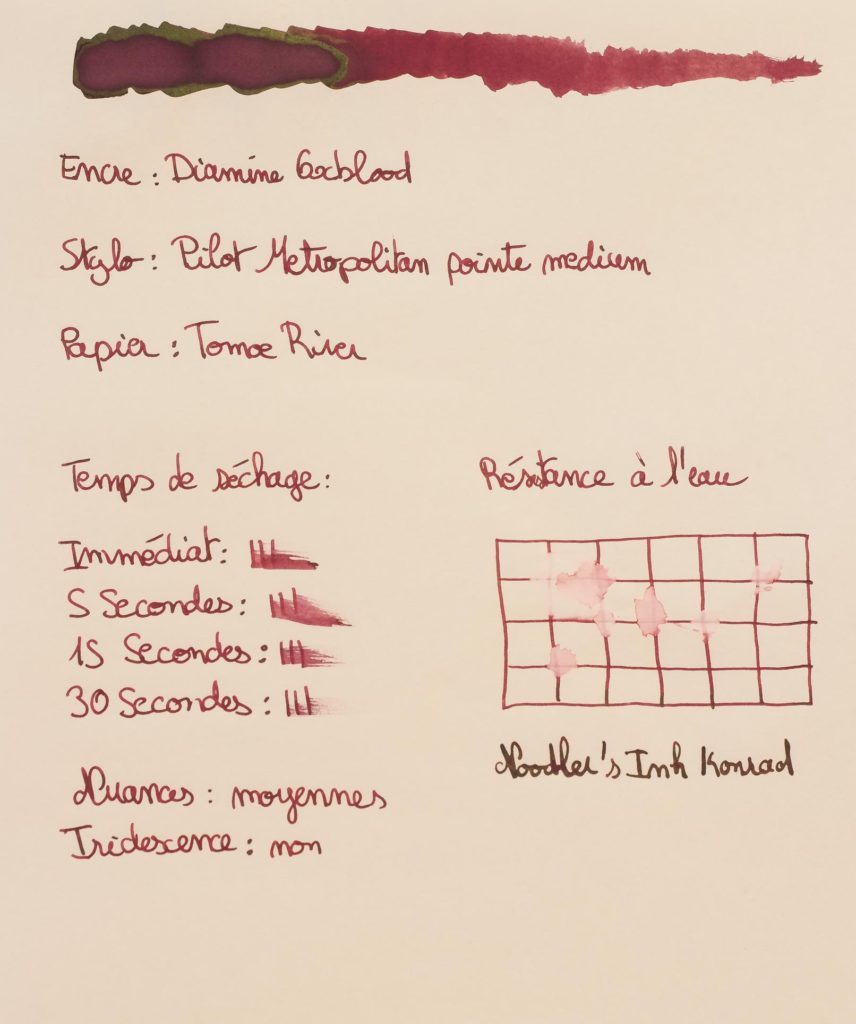 Encre : Diamine Oxblood
Stylo : Pilot Metropolitan pointe medium
Papier : Tomoe River
Temps de séchage :
Immédiat :
5 Secondes :
15 Secondes :
30 Secondes :
Nuances : moyennes
Iridescence : non
Résistance à l'eau
Noodler's Ink Konrad